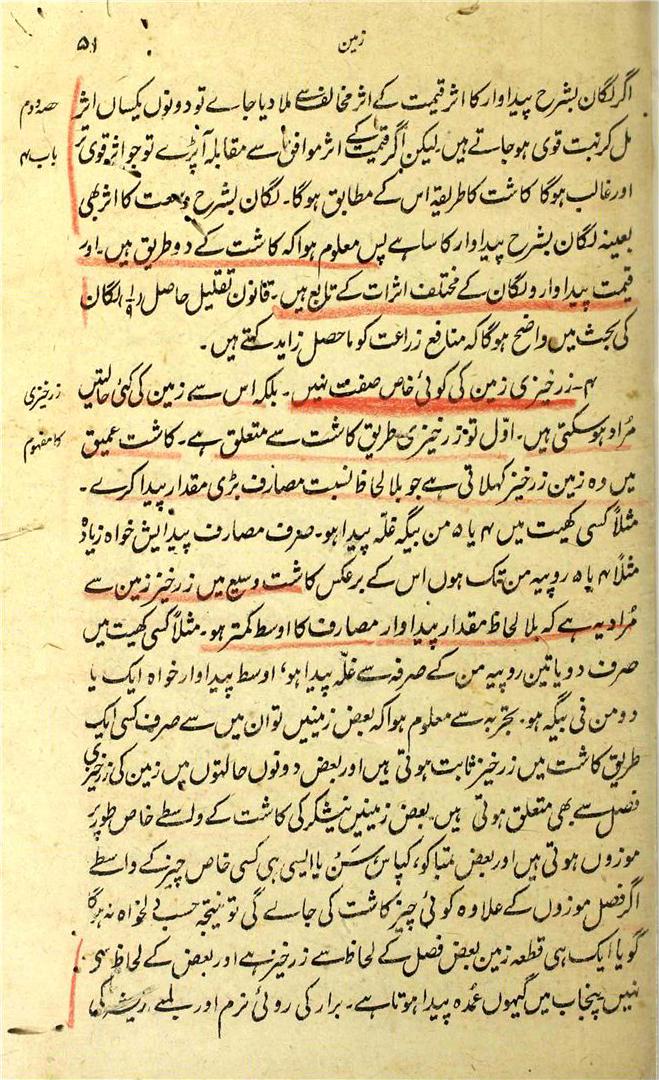 زمین
۵۱
حصہ دوم
باب ۴
اگر لگان بشرح پیداوار کا اثر قیمت کے اثر مخالف سے ملا دیا جاے تو دونوں یکساں اثر
مل کر نہت قوی ہو جاتے ہیں۔ لیکن اگر قیمت کے اثر موافق سے مقابلہ آپڑے تو جو اثر قوی تر
اور غالب ہوگا کاشت کا طریقہ اس کے مطابق ہوگا۔ لگان بشرح وسعت کا اثر بھی
بعینہ لگان بشرح پیداوار کا سا ہے پس معلوم ہوا کہ کاشت کے دو طریق ہیں۔ اور
قیمت پیداوار و لگان کے مختلف اثرات کے تابع ہیں۔ قانون تقلیل حاصل لگان
کی بحث میں واضح ہوگا کہ منافع زراعت کو ماحصل زاید کہتے ہیں۔
زرخیزی
کا مفہوم
۴۔ زرخیزی زمین کی کوئی خاص صفت نہیں۔ بلکہ اس سے زمین کی کئی حالتیں
مُراد ہو سکتی ہیں۔ اوّل تو زرخیزی طریق کاشت سے متعلق ہے۔ کاشت عمیق
میں وہ زمین زرخیز کہلاتی ہے جو بلا لحاظ نسبت مصارف بڑی مقدار پیدا کرے۔
مثلاً کسی کھیت میں ۴ یا ۵ من بیگہ غلّہ پیدا ہو۔ صرف مصارف پیدایش خواہ زیادہ
مثلاً ۴ یا ۵ روپیہ من تک ہوں اس کے برعکس کاشت وسیع میں زرخیز زمین سے
مُراد یہ ہے کہ بلا لحاظ مقدار پیداوار مصارف کا اوسط کمتر ہو۔ مثلاً کسی کھیت میں
صرف دو یا تین روپیہ من کے صرفہ سے غلّہ پیدا ہو، اوسط پیداوار خواہ ایک یا
دو من فی بیگہ ہو۔ تجربہ سے معلوم ہوا کہ بعض زمینیں تو ان میں سے صرف کسی ایک
طریق کاشت میں زرخیز ثابت ہوتی ہیں اور بعض دونوں حالتوں میں زمین کی زرخیزی
فصل سے بھی متعلق ہوتی ہیں۔ بعض زمینیں نیشکر کی کاشت کے واسطے خاص طور پر
موزوں ہوتی ہیں اور بعض تمباکو، کپاس سَن یا ایسی ہی کسی خاص چیز کے واسطے
اگر فصل موزوں کے علاوہ کوئی چیز کاشت کی جاے گی تو نتیجہ حسب دلخواہ نہ ہوگا
گویا ایک ہی قطعہ زمین بعض فصل کے لحاظ سے زرخیز ہے اور بعض کے لحاظ سے
نہیں پنجاب میں گیہوں عمدہ پیدا ہوتا ہے۔ برار کی روئی نرم اور لمبے ریشہ کی